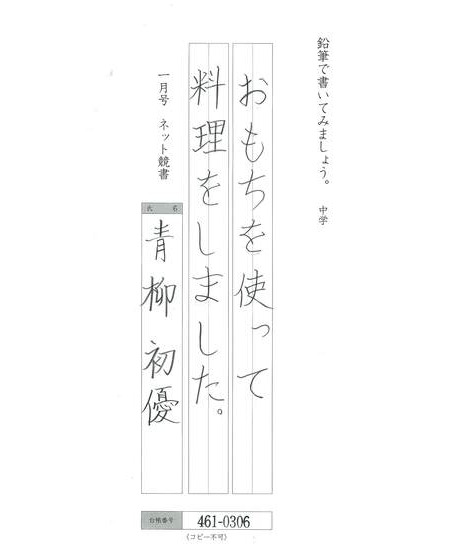 鉛筆で書いてみましょう。 中学
おもちを使って
料理をしました。
一月号 ネット競書
氏 名
青柳 初優
台帳番号 461-0306
(コピー不可)